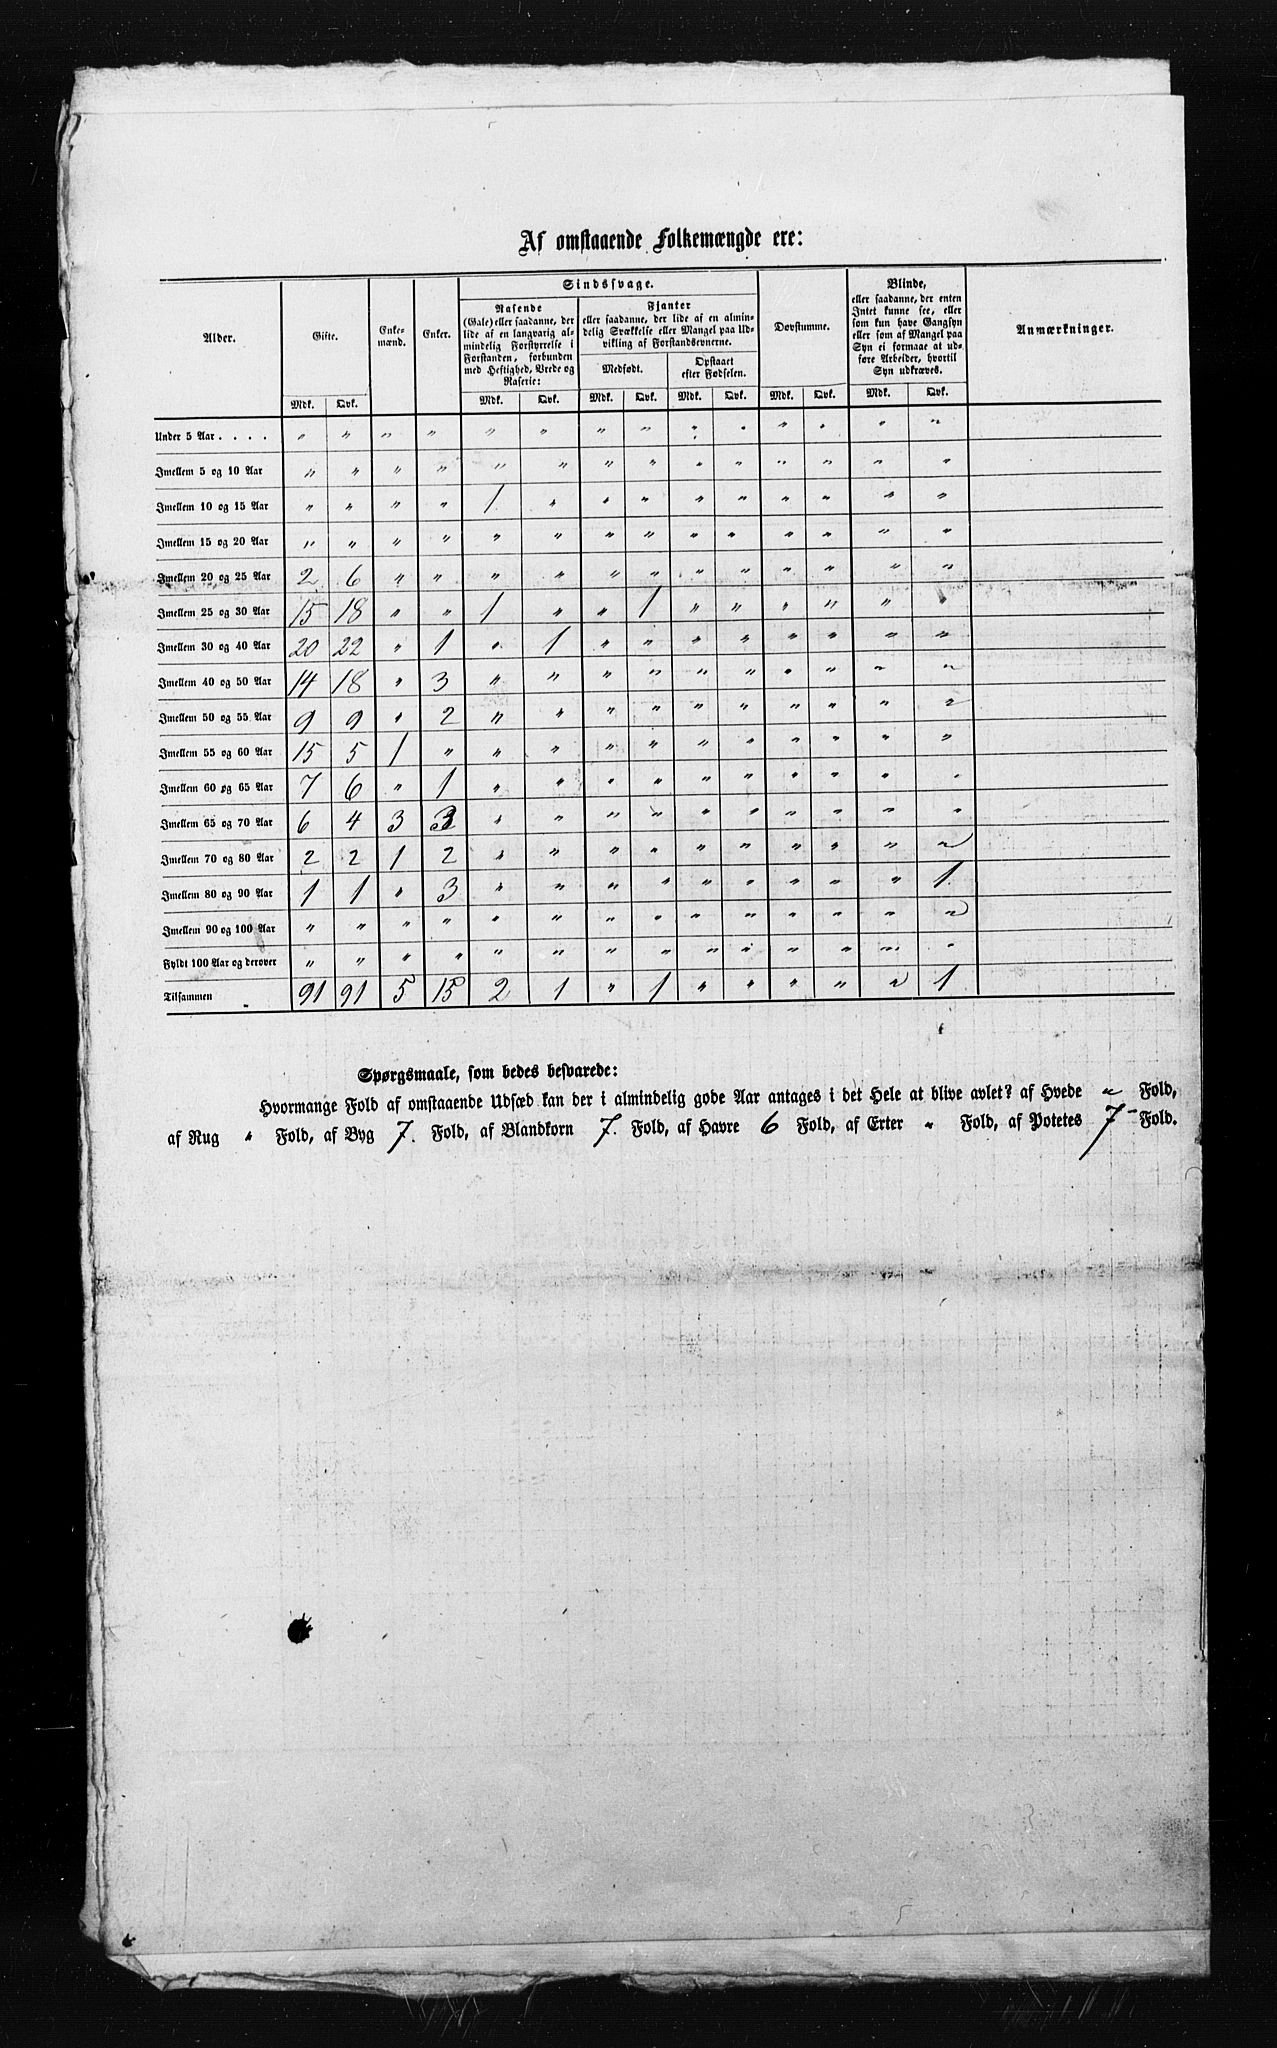 Af omstaaende Folkemængde ere:
Alder. Gifte. Enke-mænd. Enker. Sindssvage. Døvstumme. Blinde, Anmærkninger.
Rasende (Gale) eller saadanne, der lide af en langvarig almindelig Forstyrrelse i Forstanden, forbunden med Heftighed, Vrede og Raserie:
Fjanter eller saadanne, der lide af en almindelig Svækkelse eller Mangel paa Udvikling af Forstandsevnerne.
Medfødt. Opstaaet efter Fødselen.
eller saadanne, der enten Intet kunne see, eller som kun have Gangsyn eller som af Mangel paa Syn ei formaae at udføre Arbeider, hvortil Syn udkræves.
Mdk. Qvk. Mdk. Qvk. Mdk. Qvk. Mdk. Qvk. Mdk. Qvk. Mdk. Qvk.
Under 5 Aar . . . . " " " " " " " " " " " " " "
Imellem 5 og 10 Aar " " " " " " " " " " " " " "
Imellem 10 og 15 Aar " " " " 1 " " " " " " " " "
Imellem 15 og 20 Aar " " " " " " " " " " " " " "
Imellem 20 og 25 Aar 2 6 " " " " " " " " " " " "
Imellem 25 og 30 Aar 15 18 " " 1 " " 1 " " " " " "
Imellem 30 og 40 Aar 20 22 " 1 " 1 " " " " " " " "
Imellem 40 og 50 Aar 14 18 " 3 " " " " " " " " " "
Imellem 50 og 55 Aar 9 9 " 2 " " " " " " " " " "
Imellem 55 og 60 Aar 15 5 1 " " " " " " " " " " "
Imellem 60 og 65 Aar 7 6 " 1 " " " " " " " " " "
Imellem 65 og 70 Aar 6 4 3 3 " " " " " " " " " "
Imellem 70 og 80 Aar 2 2 1 2 " " " " " " " " " "
Imellem 80 og 90 Aar 1 1 " 3 " " " " " " " " " 1
Imellem 90 og 100 Aar " " " " " " " " " " " " " "
Fyldt 100 Aar og derover " " " " " " " " " " " " " "
Tilsammen 91 91 5 15 2 1 " 1 " " " " " 1
Spørgsmaale, som bedes besvarede:
Hvormange Fold af omstaaende Udsæd kan der i almindelig gode Aar antages i det Hele at blive avlet? af Hvede " Fold,
af Rug " Fold, af Byg 7. Fold, af Blandkorn 7. Fold, af Havre 6 Fold, af Erter " Fold, af Potetes 7 Fold.